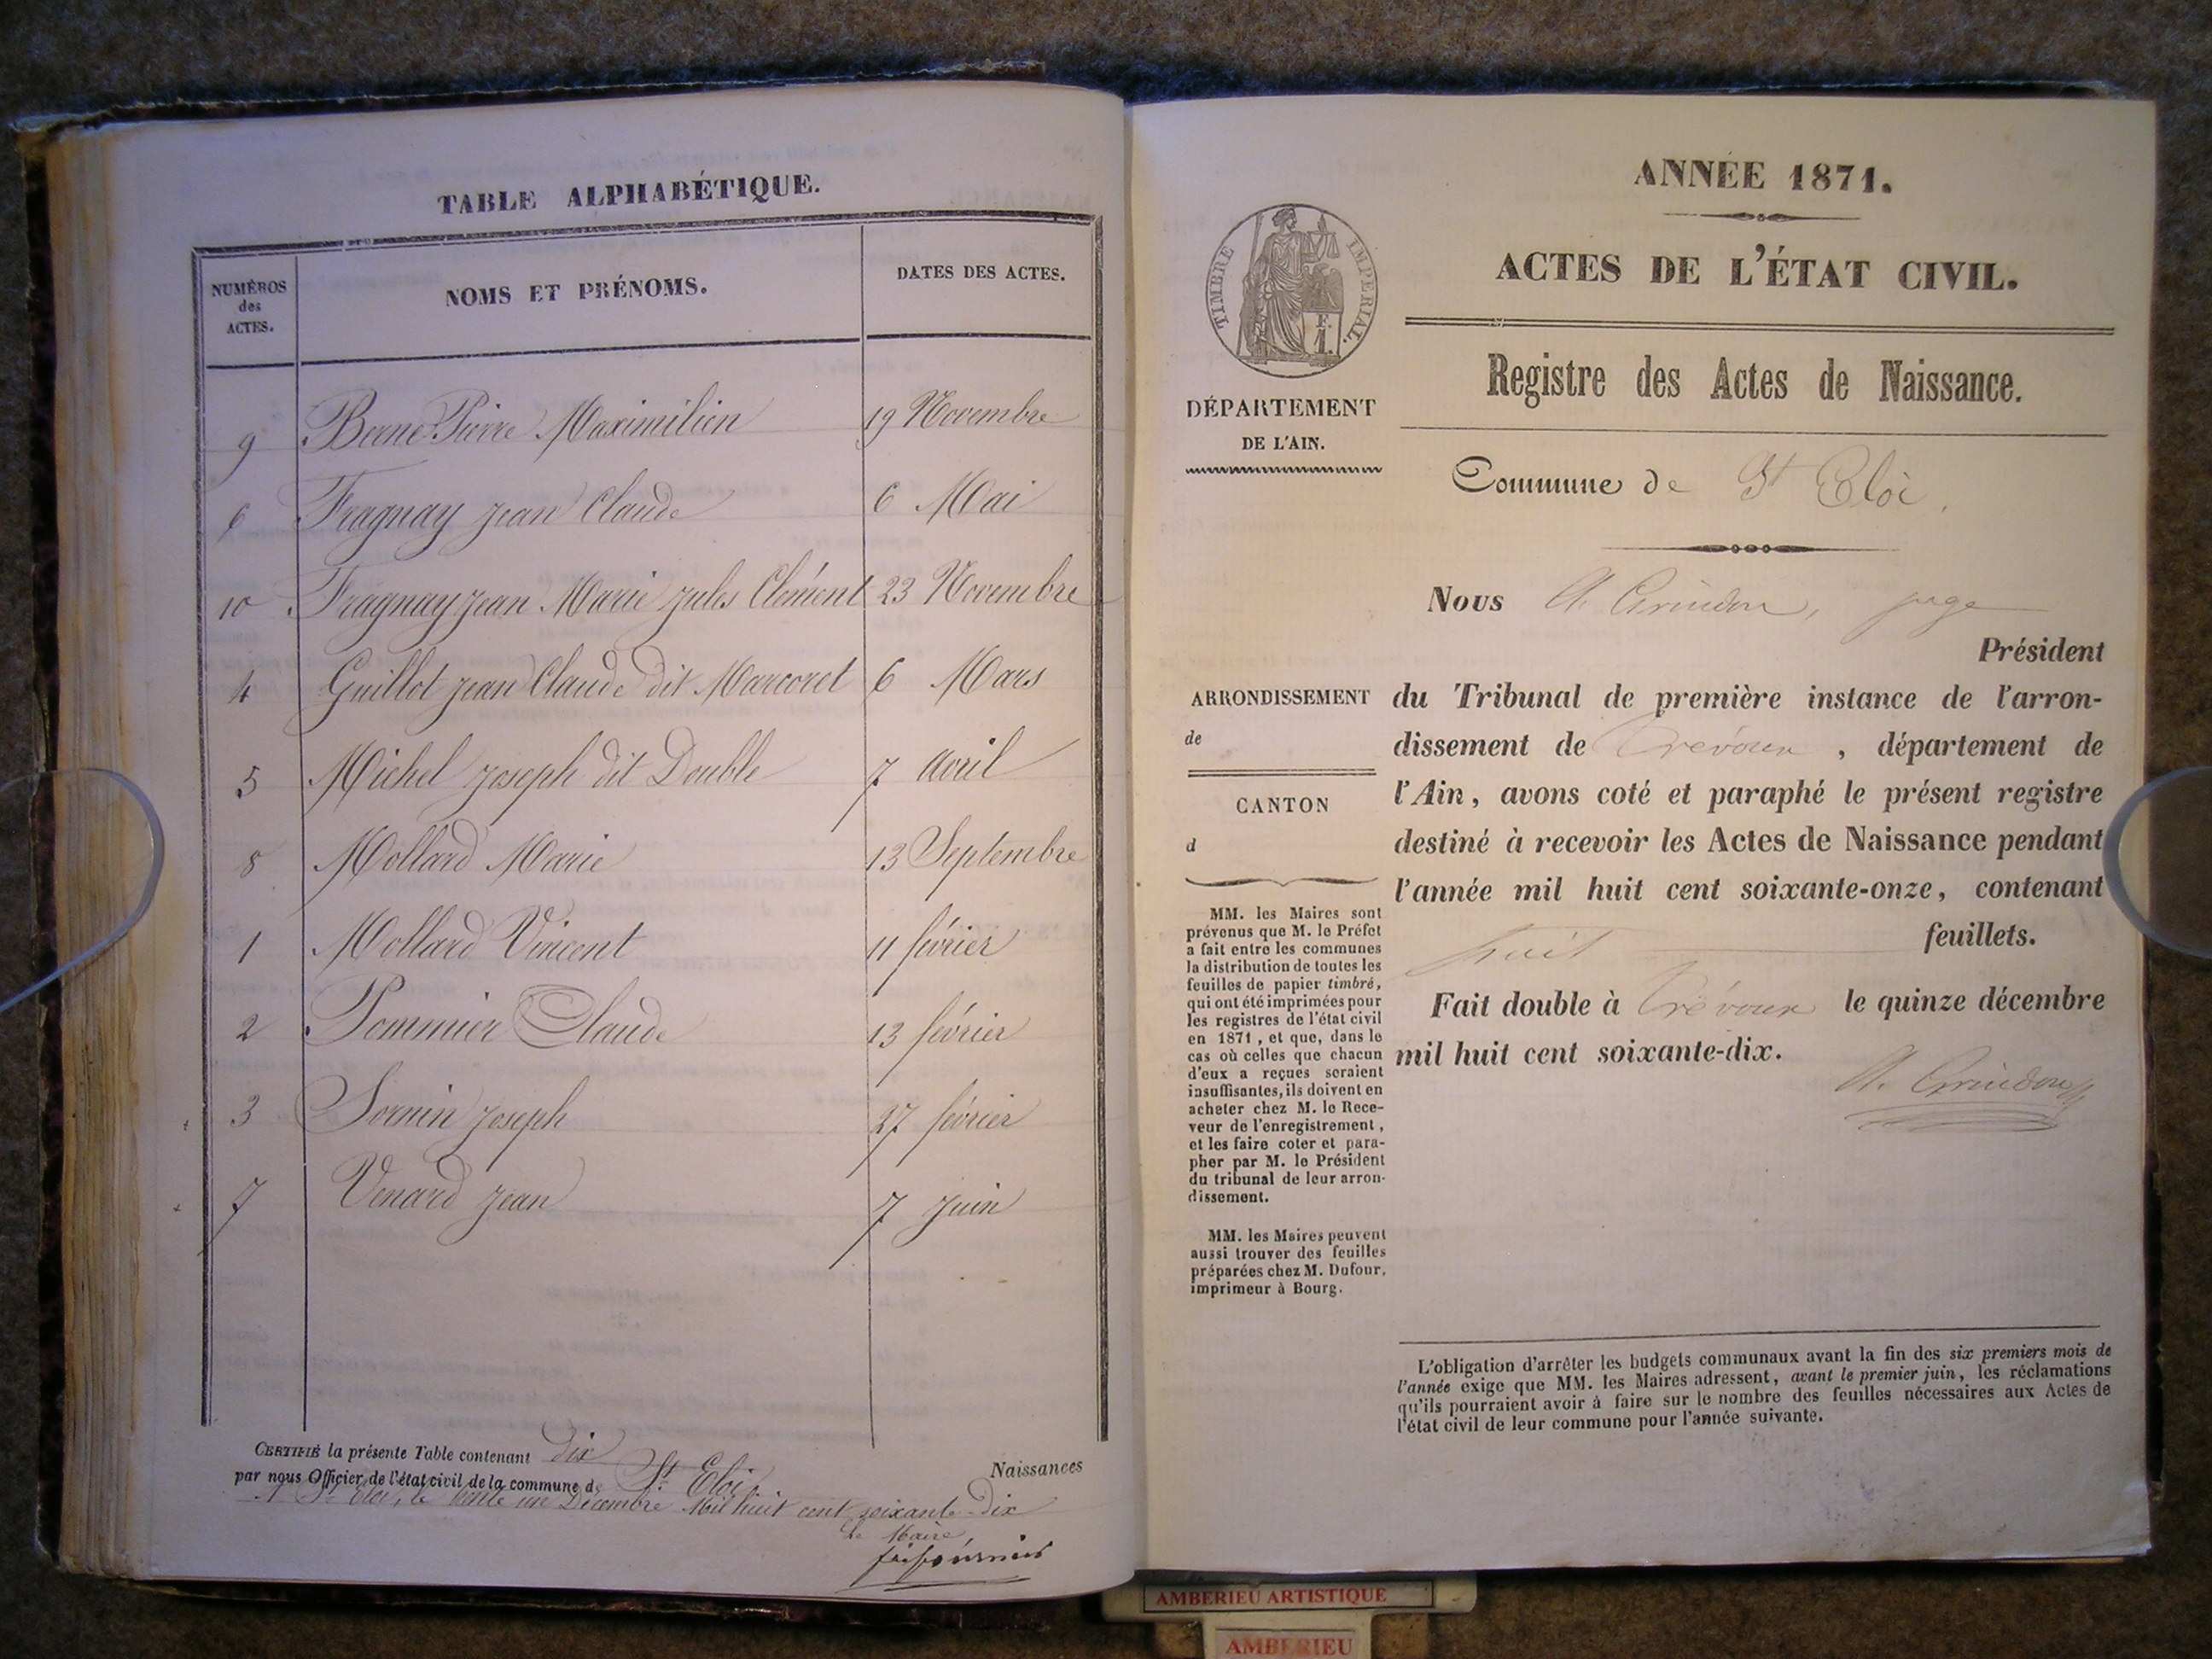 TABLE ALPHABÉTIQUE.
NUMÉROS
des
ACTES.
NOMS ET PRÉNOMS.
DATES DES ACTES.
9 Berne Pierre Maximilien 19 Novembre
6 Fragnay jean Claude 6 Mai
10 Fragnay jean Marie jules Clément 23 Novembre
4 Guillot jean Claude dit Marcoret 6 Mars
5 Michel joseph dit Double 7 avril
8 Mollard Marie 13 Septembre
1 Mollard Vincent 11 février
2 Pommier Claude 13 février
3 Sornin joseph 27 février
7 Venard jean 7 juin
CERTIFIÉ la présente Table contenant dix Naissances
par nous Officier de l'état civil de la commune de St Eloi
A St Eloi, le trente un Décembre Mil huit cent soixante-dix
le Maire
ANNÉE 1871.
ACTES DE L'ÉTAT CIVIL.
TIMBRE IMPÉRIAL.
F.
1.
DÉPARTEMENT
DE L'AIN.
Registre des Actes de Naissance.
Commune de St Eloi
Nous A. Grindon, juge
Président
ARRONDISSEMENT
de
CANTON
d
du Tribunal de première instance de l'arron-
dissement de Trévoux , département de
l'Ain, avons coté et paraphé le présent registre
destiné à recevoir les Actes de Naissance pendant
l'année mil huit cent soixante-onze, contenant
huit feuillets.
Fait double à Trévoux le quinze décembre
mil huit cent soixante-dix.
A. Grindon
MM. les Maires sont
prévenus que M. le Préfet
a fait entre les communes
la distribution de toutes les
feuilles de papier timbré,
qui ont été imprimées pour
les registres de l'état civil
en 1871, et que, dans le
cas où celles que chacun
d'eux a reçues seraient
insuffisantes, ils doivent en
acheter chez M. le Rece-
veur de l'enregistrement,
et les faire coter et para-
pher par M. le Président
du tribunal de leur arron-
dissement.
MM. les Maires peuvent
aussi trouver des feuilles
préparées chez M. Dufour,
imprimeur à Bourg.
L'obligation d'arrêter les budgets communaux avant la fin des six premiers mois de
l'année exige que MM. les Maires adressent, avant le premier juin, les réclamations
qu'ils pourraient avoir à faire sur le nombre des feuilles nécessaires aux Actes de
l'état civil de leur commune pour l'année suivante.
AMBERIEU ARTISTIQUE
AMBERIEU